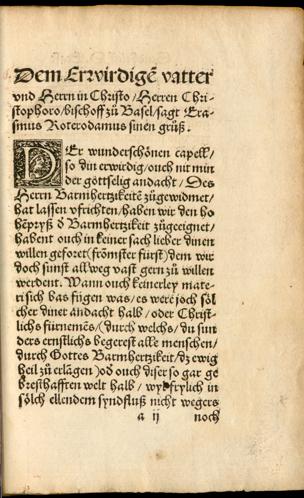 Dem Erwirdigē vatter
vnd Herrn in Christo / Herren Chri-
stophoro / bischoff zů Basel / sagt Era-
smus Roterodamus sinen grůß.
DEr wunderschönen capell /
so din erwirdig / ouch nit min
der göttselig andacht / Des
Herrn Barmhertzikeitē zůgewidmet /
hat lassen vfrichten / haben wir den ho
hēpryß d Barmhertzikeit zůgeeignet /
habent ouch in keiner sach lieber dinen
willen geforet (frömster fürst) dem wir
doch sunst allweg vast gern zů willen
werdent. Wann ouch keinerley mate-
ri sich bas fügen was / es were joch söl
cher diner andacht halb / oder Christ-
lichs fürnemēs / (durch welchs / du sun
ders ernstlichs begerest alle menschen /
durch Gottes Barmhertzikeit / dz ewig
heil zů erlāgen) od ouch diser so gar ge
bresthafften welt halb / wylfrylich in
sölch ellendem syndfluß nicht wegers
a ij noch